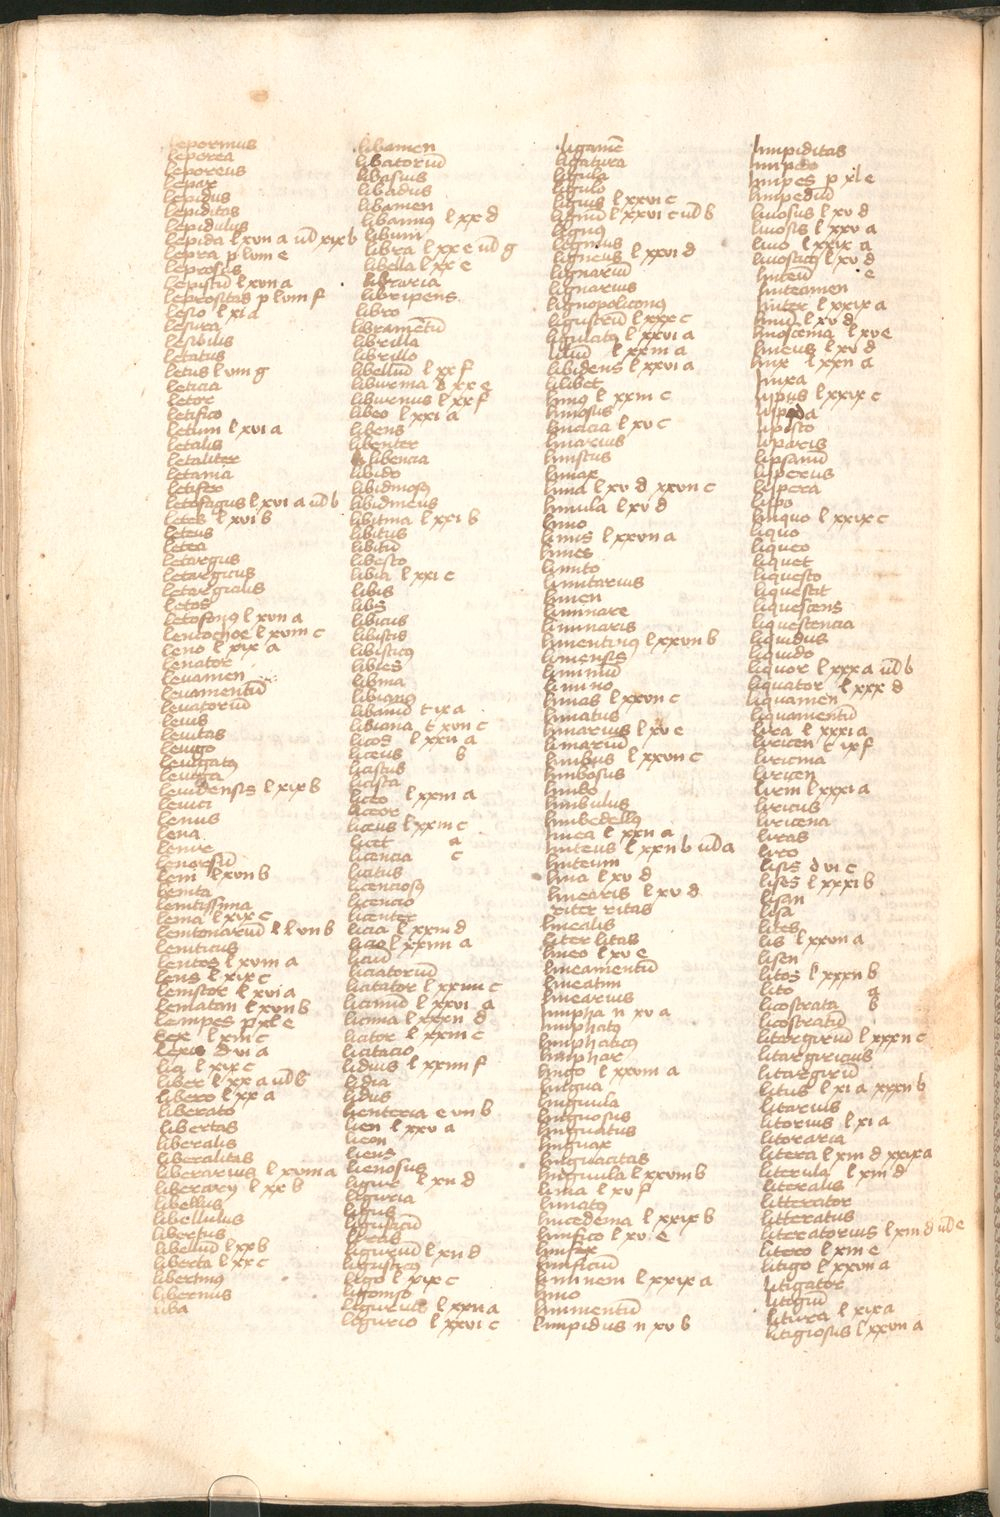 leporinus
leporea
leporeus
lepax
lepidus
lepiditas
lepidulus
lepida l xvii a vd xix b
lepra p lviii e
leprosus
lepistiū l xvii a
leprositas p lviii f
lesio l xi d
lesura
lesibilis
letatus
letus l viii g
leticia
letor
letifico
letum l xvi a
letalis
letaliter
letania
letifer
letofagus l xvi a vd b
letes l xvi b
leteus
letea
letargus
letargicus
letargicalis
letos
leucochoe l xviii c
leno l xix a
lenator
leuamen
leuamentū
leuatoriū
leuis
leuitas
leuigo
leuigatꝯ
leuiga
leuidensis l xix b
leuici
lenius
lena
lenire
leni l xvii b
lenita
lenitissima
lema l xix c
leniticus
lentos l xviii a
lens l xix c
lempes p xl e
lex l xiii c
lexis d vi a
lia l xix c
liber l xx a vd b
libero l xx a
liberato
libertas
liberalis
liberalitas
liberarius l xviii a
liberariꝯ l xx b
libellus
libellulus
libertus
libellū l xx b
liberta l xx c
libertinꝯ
libernus
liba
libamen
libatoriū
libasius
libadus
libamen
libanniꝯ l xx d
libum
libra l xx e vd g
libella l xx e
libraria
libripens
libro
libramētū
librilla
librillo
libellū l xx f
liburnia d xx e
liburnus l xx f
libeo l xxi a
libens
libenter
libencia
libido
libidinosꝯ
libidineus
libitina l xxi b
libitus
libitū
libesco
libia l xxi c
libis
libs
libicus
libistis
libisticꝯ
libies
libina
libianꝯ
libanū t ix a
libiana t xvii c
licos l xxii a
liceus b
licistus
licista
liceo l xxiii a
liceor
liceus l xxiii c
licet a
licencia c
licitus
licenciosꝯ
licencio
licenter
licia l xxiii d
licio l xxiiii a
liciū
liciatoriū
licitator l xxiiii c
liciniū l xxvi a
licinia l xxxii d
licitor l xxiiii c
licitacio
lidius l xxiiii f
lidia
lidus
lienteria e vii b
lien l xxv a
lieon
liens
lienosus
ligur l xii d
liguria
ligus
ligusticū
liguriū l xii d
ligusticꝯ
ligo l xix c
ligonizo
ligurio l xxvi c
ligamē
ligatura
ligula
ligulo
lignis l xxvi c
lignū l xxvi c vd b
lignꝯ
legnius
ligneus l xxvi d
lignariū
lignarius
ligustrū l xxx c
ligulatꝯ l xxvi a
liliū l xxiii a
libidens l xxvi a
lilibet
limꝯ l xxiii c
limosus
limacia l xv c
limarius
limistus
limax
lima l xv d xxvii c
limula l xv d
limo
limis l xxvii a
limes
limito
limitarius
limen
liminare
liminaris
limentinꝯ l xxvii b
limensis
liminiū
limino
limas l xxvii c
limatus
limarius l xv e
limariū
limbus l xxvii c
limbosus
limbo
limbulus
limbedellꝯ
linea l xxii a
linteus l xxii b vd a
linteum
lina l xv d
linearis l xv d
riter ritas
linealis
liter litas
lineo l xv e
lineamentū
lineatim
linearius
limpha n xv a
limphatꝯ
limphaticꝯ
limphor
lingo l xxviii a
lingua
linguula
linguosus
linguatus
linguax
linguacitas
linguula l xxviii b
linia l xv f
liniatꝯ
lincedema l xxix b
linifico l xv e
linifex
linificiū
liniinem l xxix a
linio
linimentū
limpidus n xv b
limpiditas
limpedo
limpes p xl e
limpediū
linosus l xv d
linosis l xxv a
lino l xxix a
linosticꝯ l xv d
linteū e
linteamen
linter l xxix a
liniū l xv d
linostema l xv e
lineus l xv d
linx l xxii a
linxa
lipus l xxix c
lipida
liposco
liparis
lipsaniū
liperus
lipera
lipo
linquo l xxix c
liquo
liqueo
liquet
liquesco
liquescit
liquescens
liquescencia
liquidus
liquido
liquor l xxx a vd b
liquator l xxx d
liquamen
liquamentū
lira l xxxi a
liricen c ix f
liricina
liricen
lirin l xxxi a
liricus
liricena
liras
liro
lisis d vi c
lises l xxxi b
lisan
lisa
lites
lis l xxvii a
lisen
litos l xxxii b
lito a
licostrata b
licostratū
litargirīū l xxxii c
litargiricus
litargiriū
litus l xi a xxxii b
litarius
litorius l xi a
litoraria
litera l xiii d xxix a
literula l xiii d
literalis
litterator
litteratus
literatorius l xiii d vd e
litero l xiii e
litigo l xxvii a
litigator
litigiū
litura l xix a
litigiosus l xxvii a